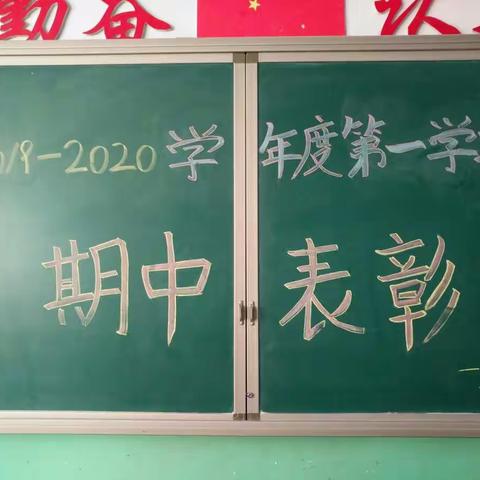 勤奋
019-2020学年度第一学
期中表彰